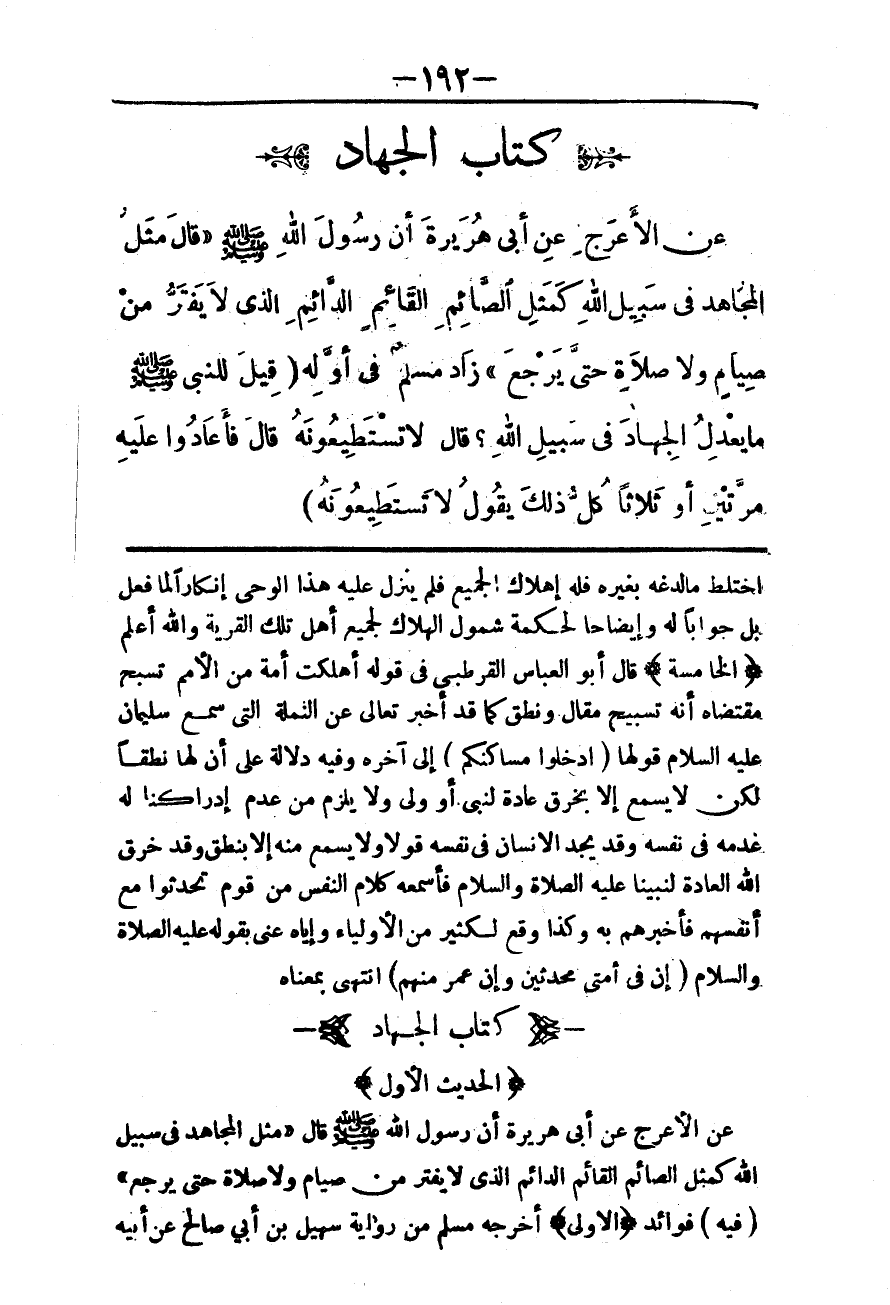 — ١٩٢ —
كتاب الجهاد
عن الأَعرَجِ عنِ أبى هُرَيرةَ أن رسُولَ اللهِ ﷺ «قالَ مَثَلُ
المجُاهد فى سَبِيلِ اللهِ كَمَثَلِ الصَّائِمِ القَائِمِ الدَّائِمِ الذى لاَ يَفتَرُّ منْ
صِيامٍ ولا صلاَةٍ حتىَّ يَرْجعَ» زاد مسلمٌ فى أوَّله ( قِيلَ للنبى ﷺ
مايعْدلُ الجِهادَ فى سَبيلِ اللهِ ؟ قال لاتسْتَطِيعُونَهُ قالَ فأَعَادُوا علَيهِ
مرَّتَيْنِ أو ثَلاثاً كُلُّ ذلكَ يقُولُ لا تَستَطِيعُونَهُ )
اختلط مالدغه بغيره فله إهلاك الجميع فلم ينزل عليه هذا الوحى إنكاراً لما فعل
بل جواباً له وإيضاحا لحكمة شمول الهلاك لجميع أهل تلك القرية والله أعلم
﴿ الخامسة ﴾ قال أبو العباس القرطبى فى قوله أهلكت أمة من الأمم تسبح
مقتضاه أنه تسبيح مقال ونطق كما قد أخبر تعالى عن النملة التى سمع سليمان
عليه السلام قولها ( ادخلوا مساكنكم ) إلى آخره وفيه دلالة على أن لها نطقاً
لكن لايسمع إلا بخرق عادة لنبى أو ولى ولا يلزم من عدم إدراكنا له
عدمه فى نفسه وقد يجد الانسان فى نفسه قولا ولا يسمع منه إلا بنطق وقد خرق
الله العادة لنبينا عليه الصلاة والسلام فأسمعه كلام النفس من قوم تحدثوا مع
أنفسهم فأخبرهم به وكذا وقع لكثير من الأولياء وإياه عنى بقوله عليه الصلاة
والسلام ( إن فى أمتى محدثين وإن عمر منهم ) انتهى بمعناه
— كتاب الجهاد —
﴿ الحديث الأول ﴾
عن الأعرج عن أبى هريرة أن رسول الله ﷺ قال «مثل المجاهد فى سبيل
الله كمثل الصائم القائم الدائم الذى لايفتر من صيام ولاصلاة حتى يرجع»
( فيه ) فوائد ﴿الاولى﴾ أخرجه مسلم من رواية سهيل بن أبي صالح عن أبيه